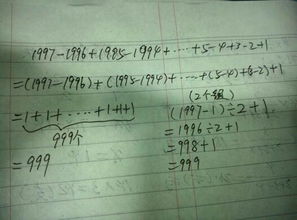 1997-1996+1995-1994+……+5-4+3-2+1
=(1997-1996)+(1995-1994)+……+(5-4)+(3-2)+1
(2个组)
=1+1+……+1+1+1
999个
=999
(1997-1)÷2+1
=1996÷2+1
=998+1
=999